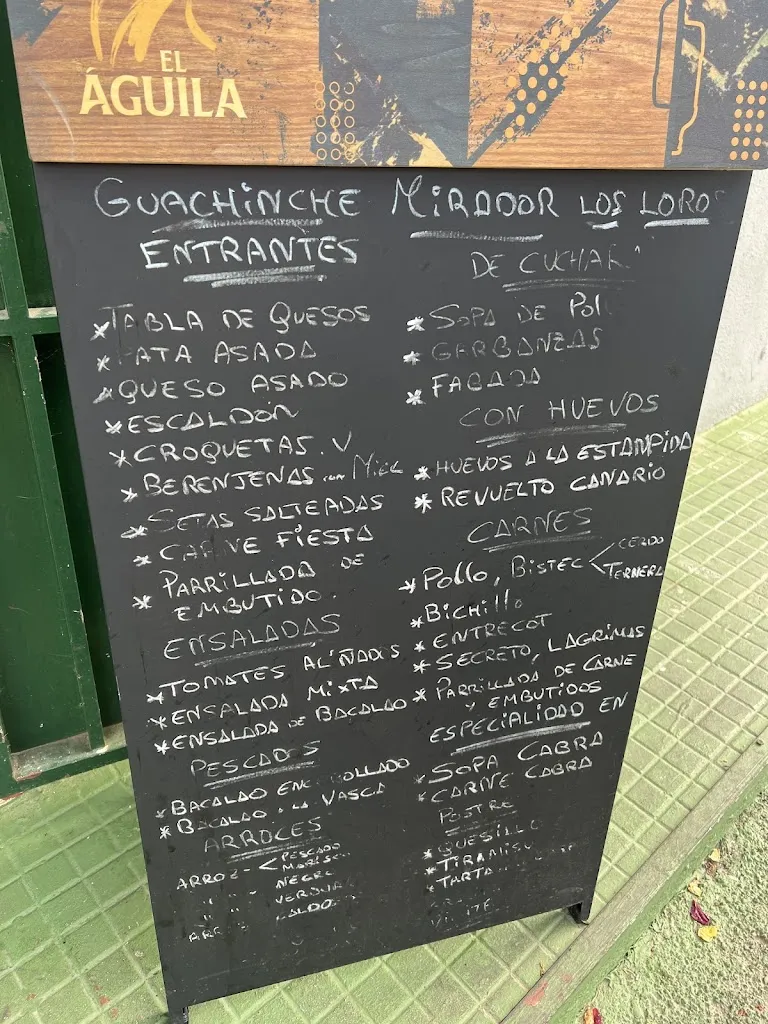 EL
ÁGUILA
GUACHINCHE MIRADOR LOS LORO
ENTRANTES
* TABLA DE QUESOS
* PATA ASADA
* QUESO ASADO
* ESCALDON
* CROQUETAS. V
* BERENJENAS con MIEL
* SETAS SALTEADAS
* CARNE FIESTA
* PARRILLADA DE
EMBUTIDO.
ENSALADAS
* TOMATES ALIÑADOS
* ENSALADA MIXTA
* ENSALADA DE BACALAO
PESCADOS
* BACALAO ENCEBOLLADO
* BACALAO A LA VASCA
ARROCES
ARROZ - < PESCADO
MARISCO
" " - NEGRO
" " - VERDURA
CALDO
DE CUCHARA
* SOPA DE POLLO
* GARBANZAS
* FABADA
CON HUEVOS
* HUEVOS A LA ESTAMPIDA
* REVUELTO CANARIO
CARNES
* POLLO, BISTEC < CERDO
TERNERA
* BICHILLO
* ENTRECOT
* SECRETO, LAGRIMAS
* PARRILLADA DE CARNE
Y EMBUTIDOS
ESPECIALIDAD EN
* SOPA CABRA
* CARNE CABRA
POSTRE
* QUESILLO
* TIRAMISU
* TARTA